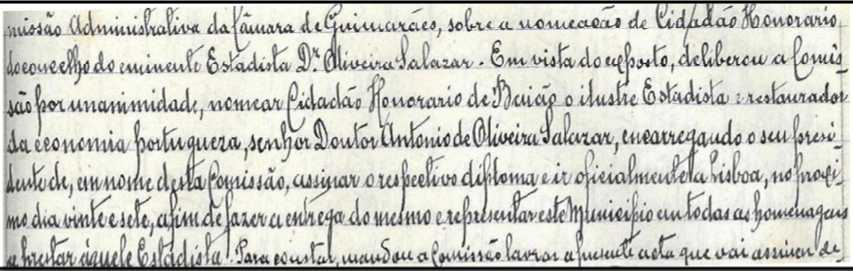 missão Administrativa da Câmara de Guimarães, sobre a nomeação de Cidadão Honorario
do concelho do eminente Estadista Dr. Oliveira Salazar. Em vista do exposto, deliberou a Comis-
são por unanimidade, nomear Cidadão Honorario de Baião o ilustre Estadista e restaurador
da economia portugueza, senhor Doutor Antonio de Oliveira Salazar, encarregando o seu presi-
dente de, em nome desta Comissão, assinar o respectivo diploma e ir oficialmente a Lisboa, no proxi-
mo dia vinte e sete, afim de fazer a entrega do mesmo e representar este Municipio em todas as homenagens
a prestar áquele Estadista. Para constar, mandou a Comissão lavrar a presente acta que vai assinar de-